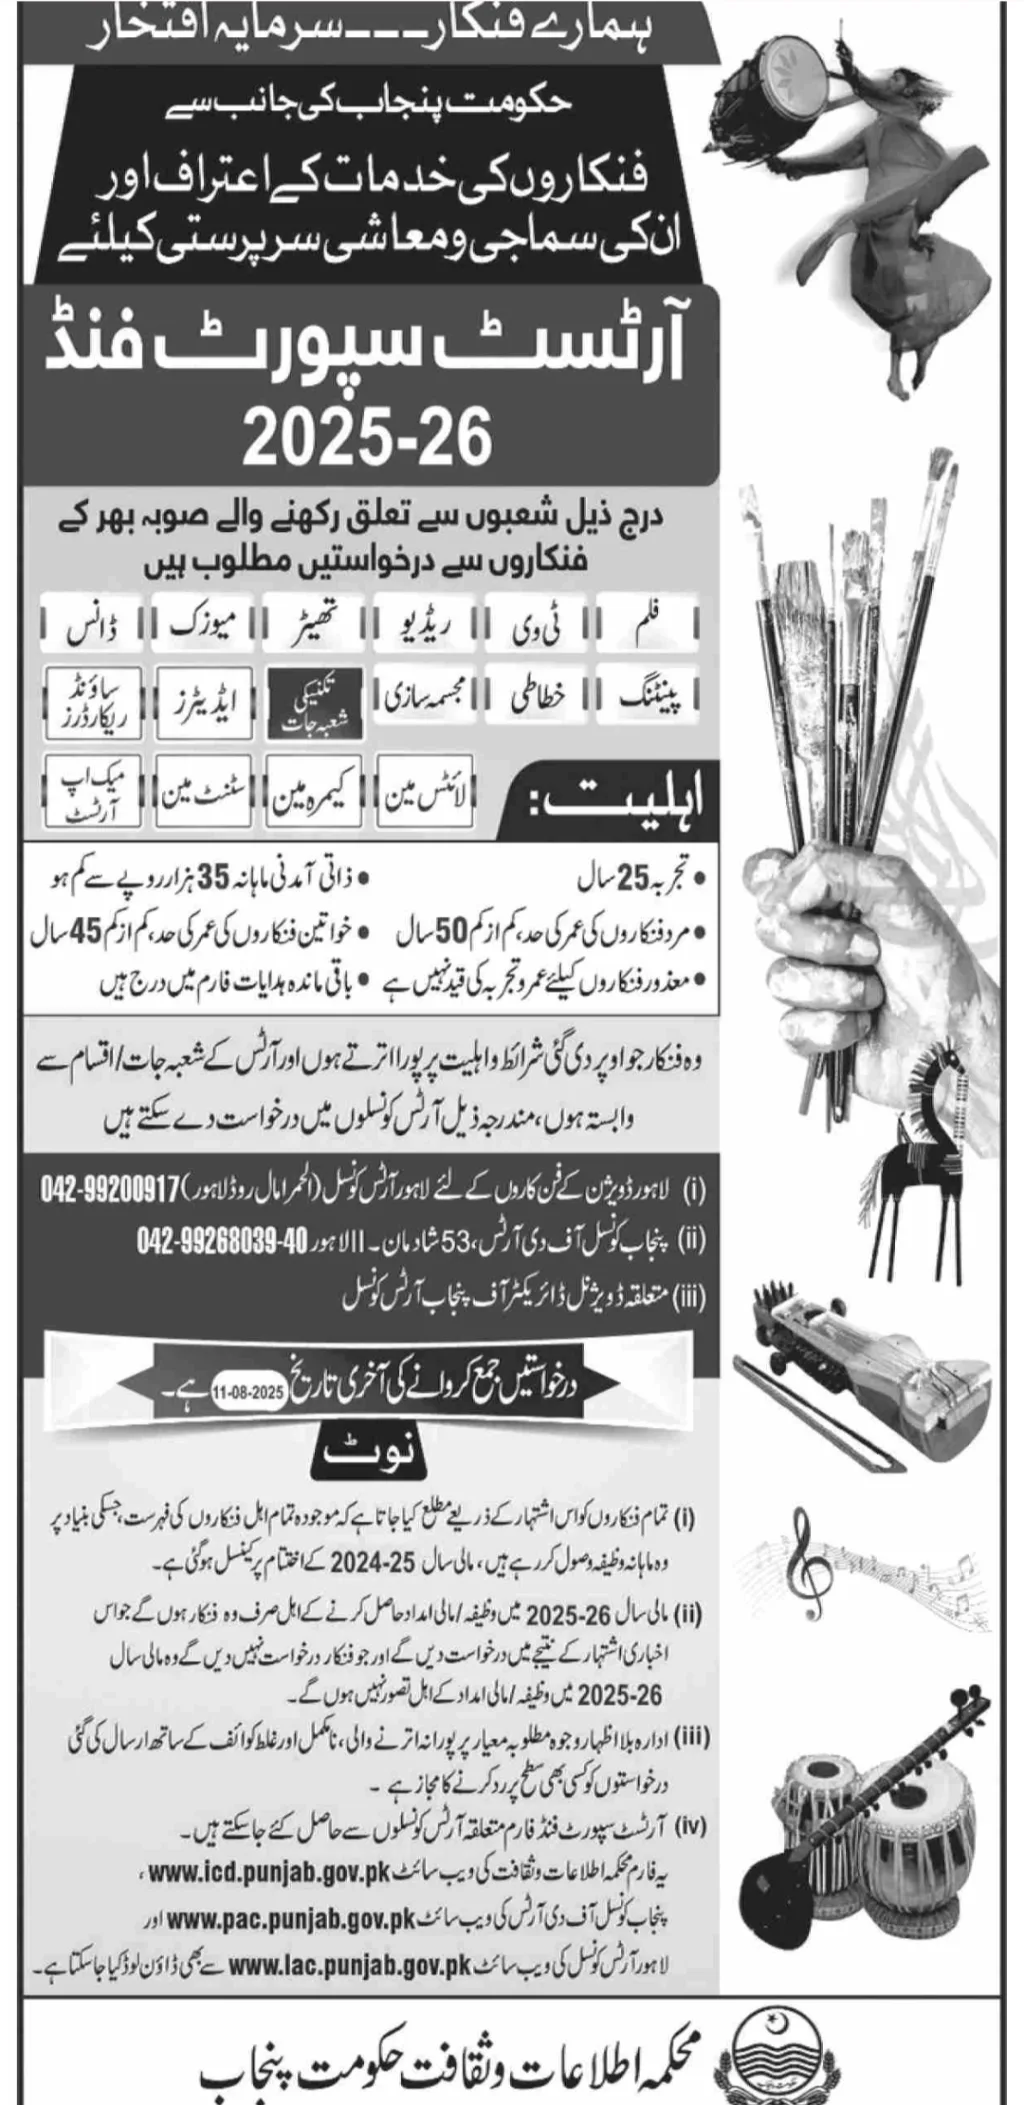 ہمارے فنکار۔۔۔سرمایہ افتخار
حکومت پنجاب کی جانب سے
فنکاروں کی خدمات کے اعتراف اور
ان کی سماجی و معاشی سرپرستی کیلئے
آرٹسٹ سپورٹ فنڈ
2025-26
درج ذیل شعبوں سے تعلق رکھنے والے صوبہ بھر کے
فنکاروں سے درخواستیں مطلوب ہیں
فلم ٹی وی ریڈیو تھیٹر میوزک ڈانس
پینٹنگ خطاطی مجسمہ سازی تکنیکی شعبہ جات ایڈیٹرز ساؤنڈ ریکارڈرز
لائٹس مین کیمرہ مین سٹنٹ مین میک اپ آرٹسٹ
اہلیت:
• تجربہ 25 سال • ذاتی آمدنی ماہانہ 35 ہزار روپے سے کم ہو
• مرد فنکاروں کی عمر کی حد، کم از کم 50 سال • خواتین فنکاروں کی عمر کی حد، کم از کم 45 سال
• معذور فنکاروں کیلئے عمر و تجربہ کی قید نہیں ہے • باقی ماندہ ہدایات فارم میں درج ہیں
وہ فنکار جو اوپر دی گئی شرائط و اہلیت پر پورا اترتے ہوں اور آرٹس کے شعبہ جات/اقسام سے
وابستہ ہوں، مندرجہ ذیل آرٹس کونسلوں میں درخواست دے سکتے ہیں
(i) لاہور ڈویژن کے فن کاروں کے لئے لاہور آرٹس کونسل (الحمرا مال روڈ لاہور) 042-99200917
(ii) پنجاب کونسل آف دی آرٹس، 53 شادمان۔II لاہور 042-99268039-40
(iii) متعلقہ ڈویژنل ڈائریکٹر آف پنجاب آرٹس کونسل
درخواستیں جمع کروانے کی آخری تاریخ 11-08-2025 ہے۔
نوٹ
(i) تمام فنکاروں کو اس اشتہار کے ذریعے مطلع کیا جاتا ہے کہ موجودہ تمام اہل فنکاروں کی فہرست، جسکی بنیاد پر
وہ ماہانہ وظیفہ وصول کر رہے ہیں، مالی سال 25-2024 کے اختتام پر کینسل ہو گئی ہے۔
(ii) مالی سال 26-2025 میں وظیفہ/مالی امداد حاصل کرنے کے اہل صرف وہ فنکار ہوں گے جو اس
اخباری اشتہار کے نتیجے میں درخواست دیں گے اور جو فنکار درخواست نہیں دیں گے وہ مالی سال
2025-26 میں وظیفہ/مالی امداد کے اہل تصور نہیں ہوں گے۔
(iii) ادارہ بلا اظہار وجوہ مطلوبہ معیار پر پورا نہ اترنے والی، نامکمل اور غلط کوائف کے ساتھ ارسال کی گئی
درخواستوں کو کسی بھی سطح پر رد کرنے کا مجاز ہے ۔
(iv) آرٹسٹ سپورٹ فنڈ فارم متعلقہ آرٹس کونسلوں سے حاصل کئے جا سکتے ہیں۔
یہ فارم محکمہ اطلاعات و ثقافت کی ویب سائٹ www.icd.punjab.gov.pk ،
پنجاب کونسل آف دی آرٹس کی ویب سائٹ www.pac.punjab.gov.pk اور
لاہور آرٹس کونسل کی ویب سائٹ www.lac.punjab.gov.pk سے بھی ڈاؤن لوڈ کیا جا سکتا ہے۔
محکمہ اطلاعات و ثقافت حکومت پنجاب